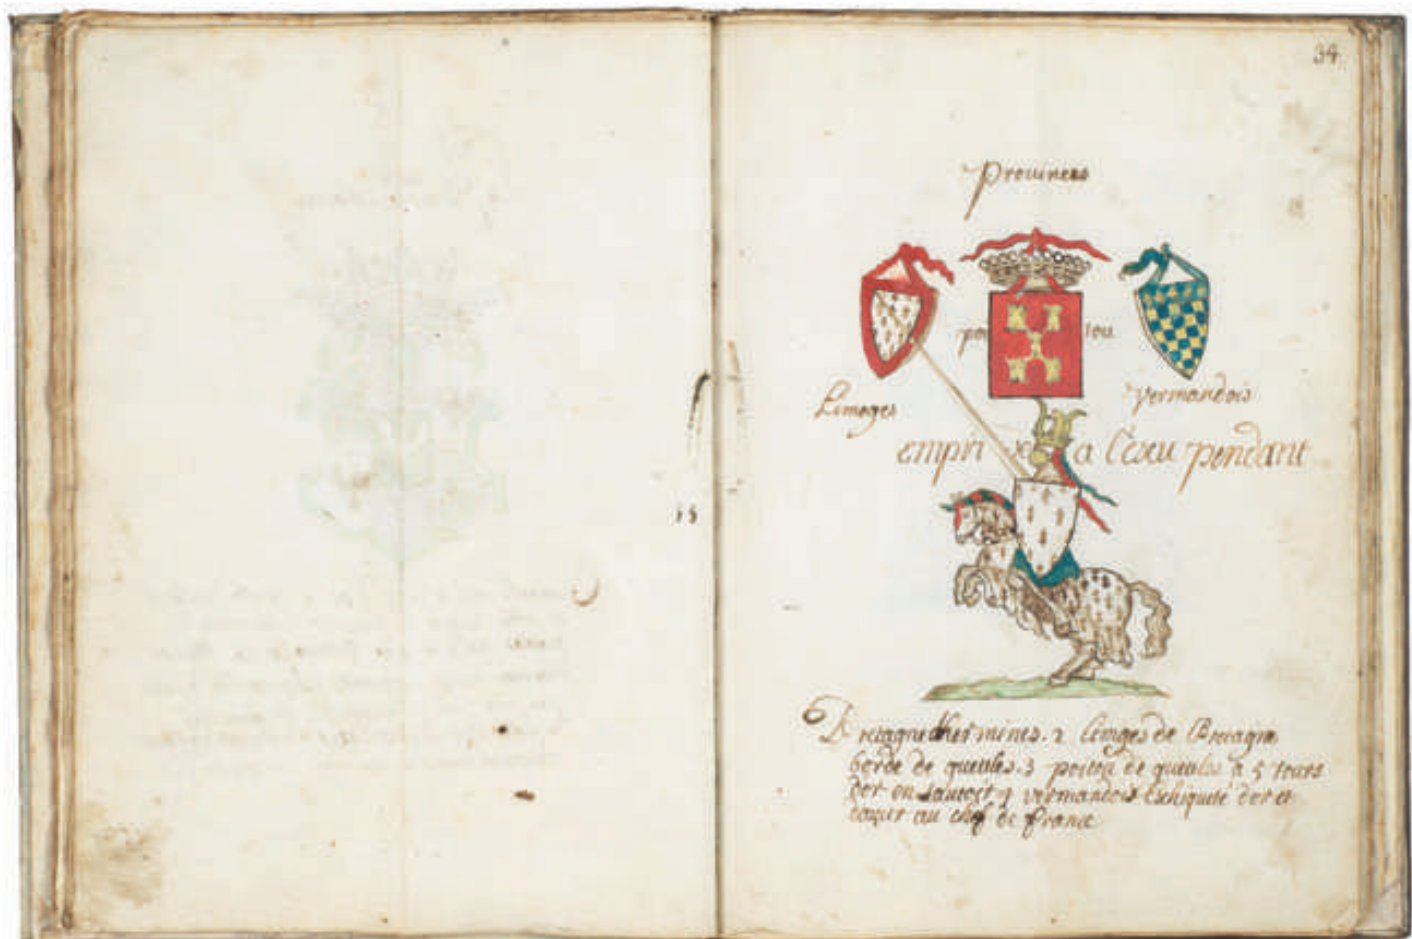 34
Prouinces
poi tou
Limoges
Vermandois
empri a l'écu pendant
15
Bretagne d'hermines. 2 limoges de Bretagne
bordé de gueules. 3 poitou de gueules a 5 tours
d'or en sautoir 4 vermandois Eschiqueté d'or et
d'azur au chef de france